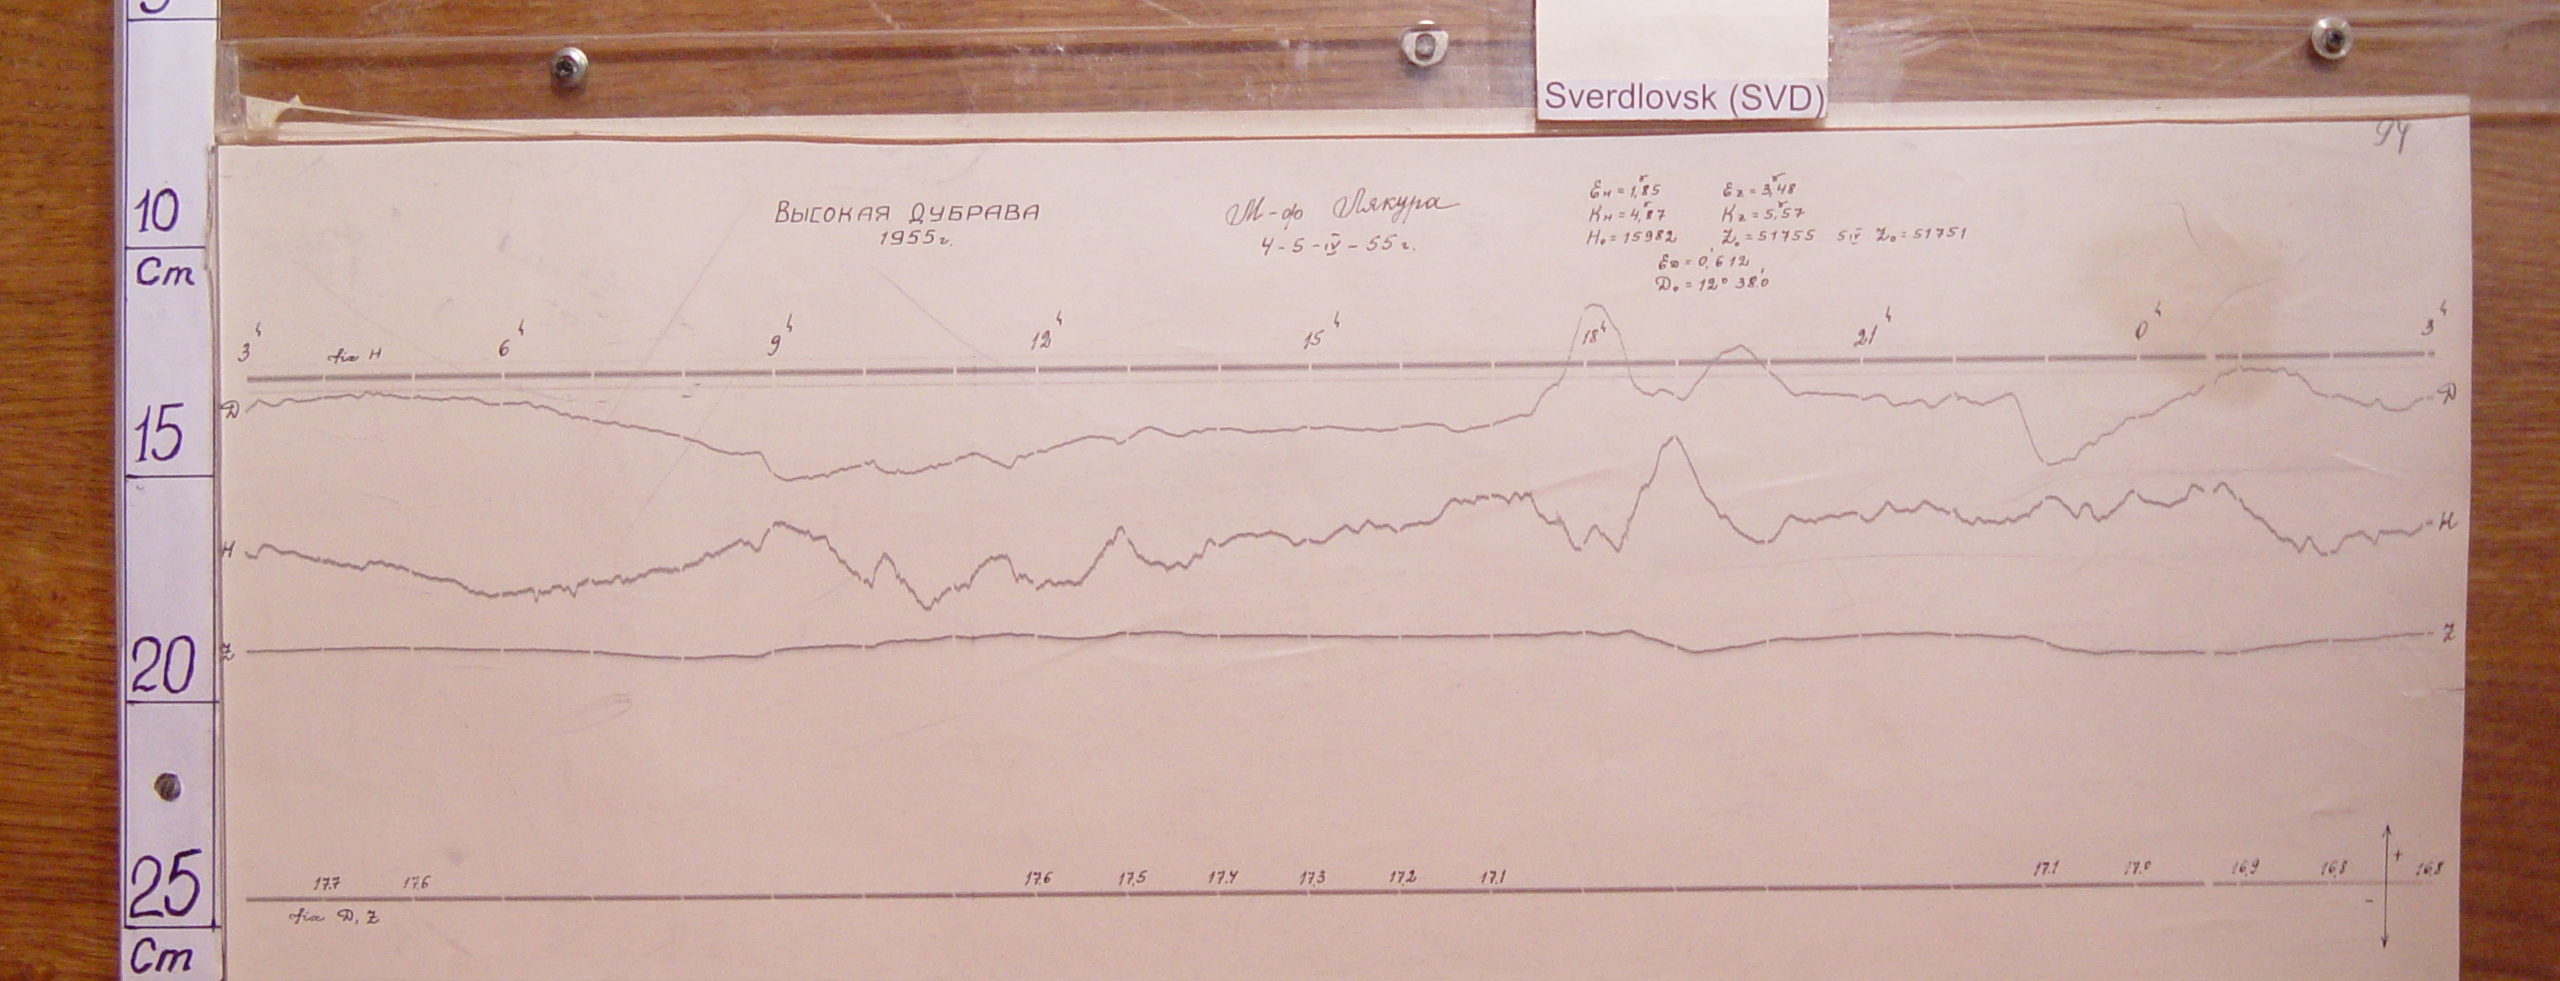 Sverdlovsk (SVD)
94
ВЫСОКАЯ ДУБРАВА
1955 г.
М-ф Лякура
4-5-IV-55 г.
Ен = 1,85 Ez = 3,48
Kн = 4,87 Kz = 5,57
H₀ = 15982 Z₀ = 51755 5 IV Z₀ = 51751
ED = 0,'612
D₀ = 12° 38,'0
3ʰ 6ʰ 9ʰ 12ʰ 15ʰ 18ʰ 21ʰ 0ʰ 3ʰ
fix H
D D
H H
Z Z
17.7 17.6 17.6 17.5 17.4 17.3 17.2 17.1 17.1 17.0 16.9 16.8 16.8
fix D, Z
+
-
10
Cm
15
20
25
Cm